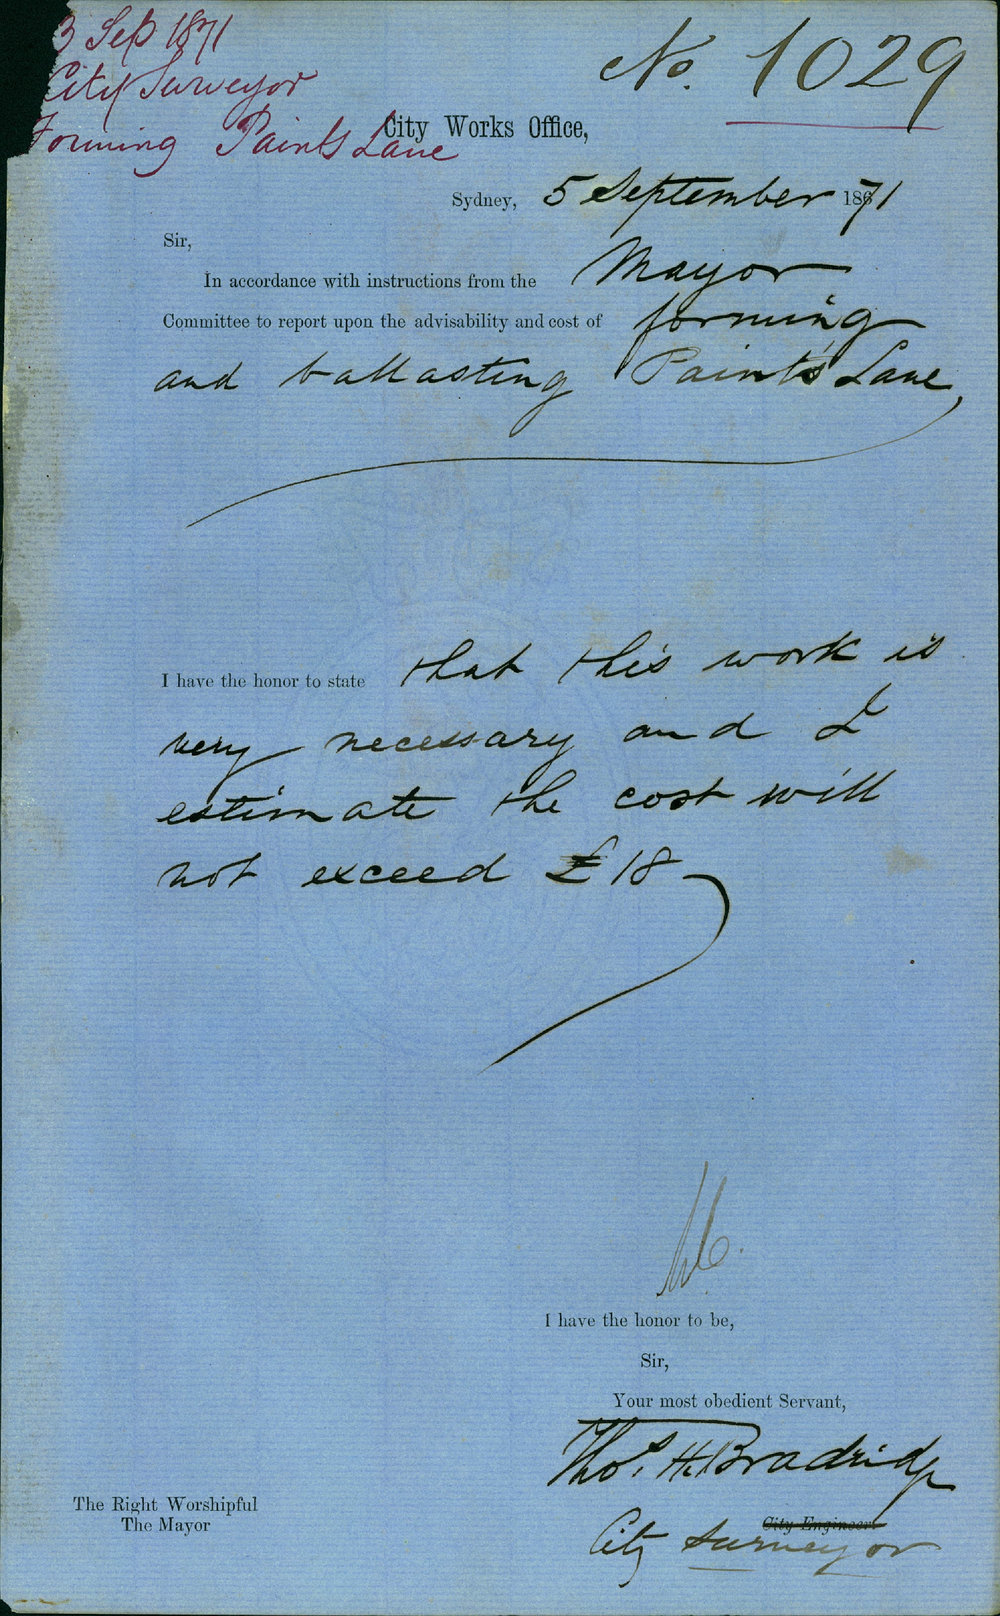 3 Sep 1871
City Surveyor
Forming Paints Lane
No. 1029
City Works Office,
Sydney, 5 September 1871
Sir,
In accordance with instructions from the Mayor
Committee to report upon the advisability and cost of forming
and ballasting Paint's Lane,
I have the honor to state that this work is
very necessary and I
estimate the cost will
not exceed £18
I have the honor to be,
Sir,
Your most obedient Servant,
Thos. H. Bradridge
City Engineer.
City Surveyor
The Right Worshipful
The Mayor